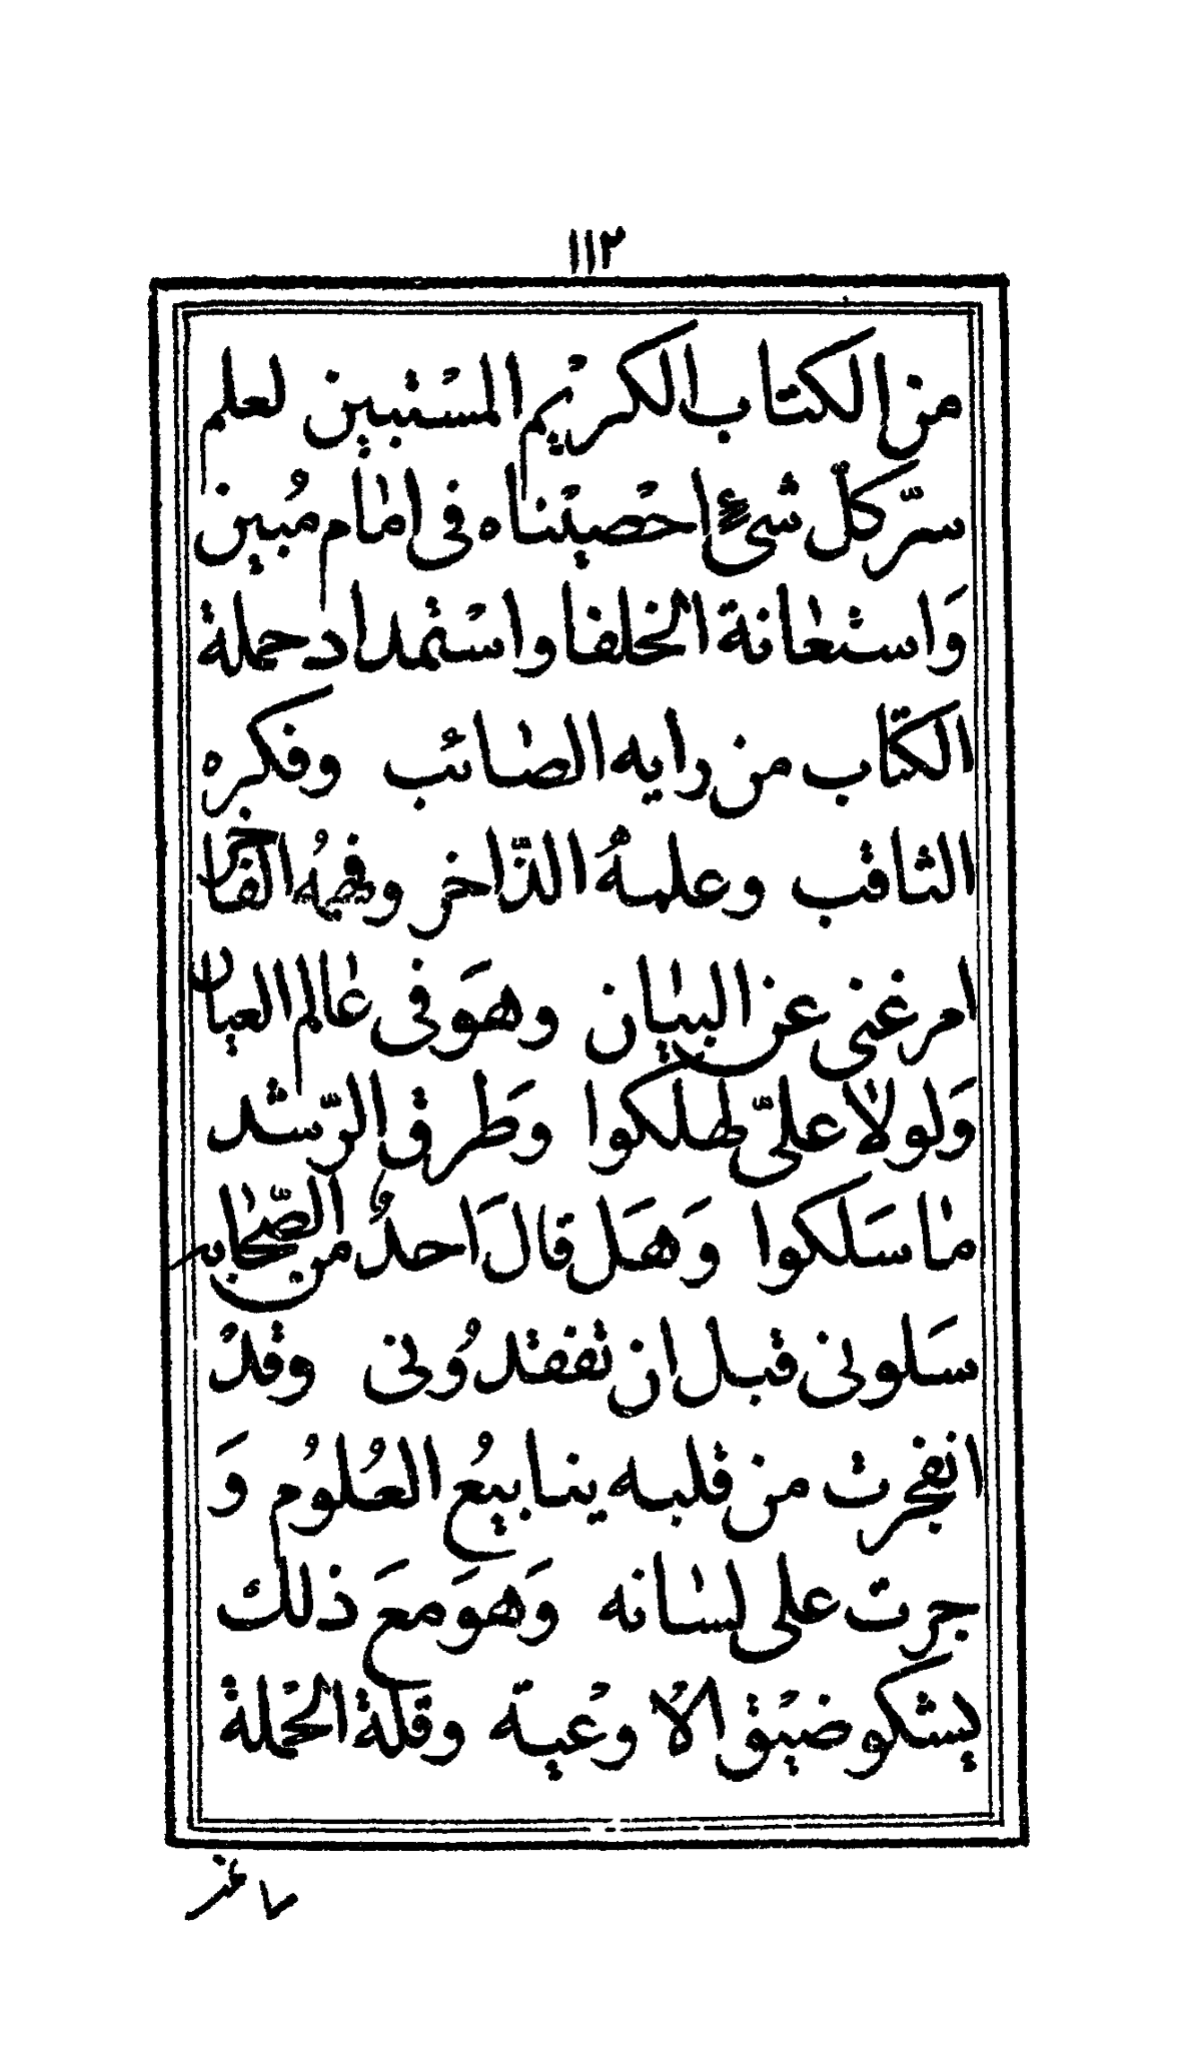 ١١٢
من الكتاب الكريم المستبين لعلم
سرّ كلّ شئٍ احْصيْناه فى امام مُبين
وَاستعانة الخلفا واسْتمداد حملة
الكتّاب من رايه الصائب وفكره
الثاقب وعلمهُ الذّاخر وفهمهُ الفاخر
امر غنى عن البيان وهوَ فى عالم العيان
وَلولا علىّ لهلكوا وَطرق الرّشد
ما سَلكوا وَهَل قالَ اَحدٌ من الصّحابه
سَلونى قبل ان تفقدُونى وقدُ
انفجرت من قلبه ينابيعُ العُلوُم وَ
جرت على لسانه وَهوَ معَ ذلك
يشكو ضيْق الاوْعية وقلة الحْملة